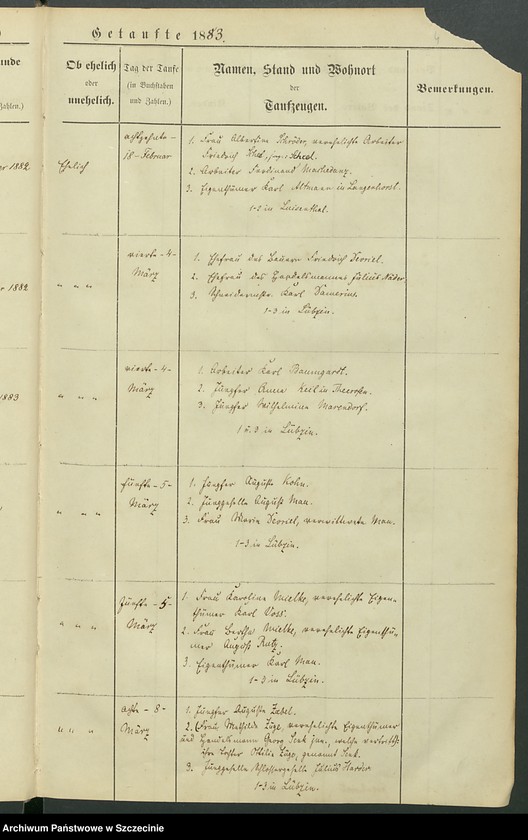 Getaufte 1883.
Ob ehelich
oder
unehelich.
Tag der Taufe
(in Buchstaben
und Zahlen.)
Namen, Stand und Wohnort
der
Taufzeugen.
Bemerkungen.
unde
Zahlen.)
1882
Ehelich
achtzehnte -
18 - Februar
1. Frau Albertine Schröder, verehelichte Arbeiter
Friedrich
2. Arbeiter Ferdinand
3. Eigenthümer Karl Altmann in
1-2 in Luisenthal.
1882
" " "
vierte - 4 -
März
1. Ehefrau des Bauern Friedrich
2. Ehefrau des Handelsmannes Julius
3. Schneidermstr. Karl
1-3 in Lübzin.
1883
" " "
vierte - 4 -
März
1. Arbeiter Karl Baumgardt.
2. Jungfer Anna Keil in
3. Jungfer Wilhelmine Marendorf.
1 u. 3 in Lübzin.
" " "
fünfte - 5 -
März
1. Jungfer Auguste Krohn.
2. Junggeselle August Man.
3. Frau Marie verwittwete Man.
1-3 in Lübzin.
" " "
Fünfte - 5 -
März
1. Frau Karoline Mielke, verehelichte Eigen-
thümer Karl Voss.
2. Frau Bertha Mielke, verehelichte Eigenthü-
mer August
3. Eigenthümer Karl Man.
1-3 in Lübzin.
" " "
achte - 8 -
März
1. Jungfer Auguste Zabel.
2. Frau Mathilde verehelichte Eigenthümer
und Handelsmann Georg jun., welche vertritt
ihre Tochter Ottilie genannt
3. Junggeselle Schlossergeselle Julius
1-3 in Lübzin.
Archiwum Państwowe w Szczecinie